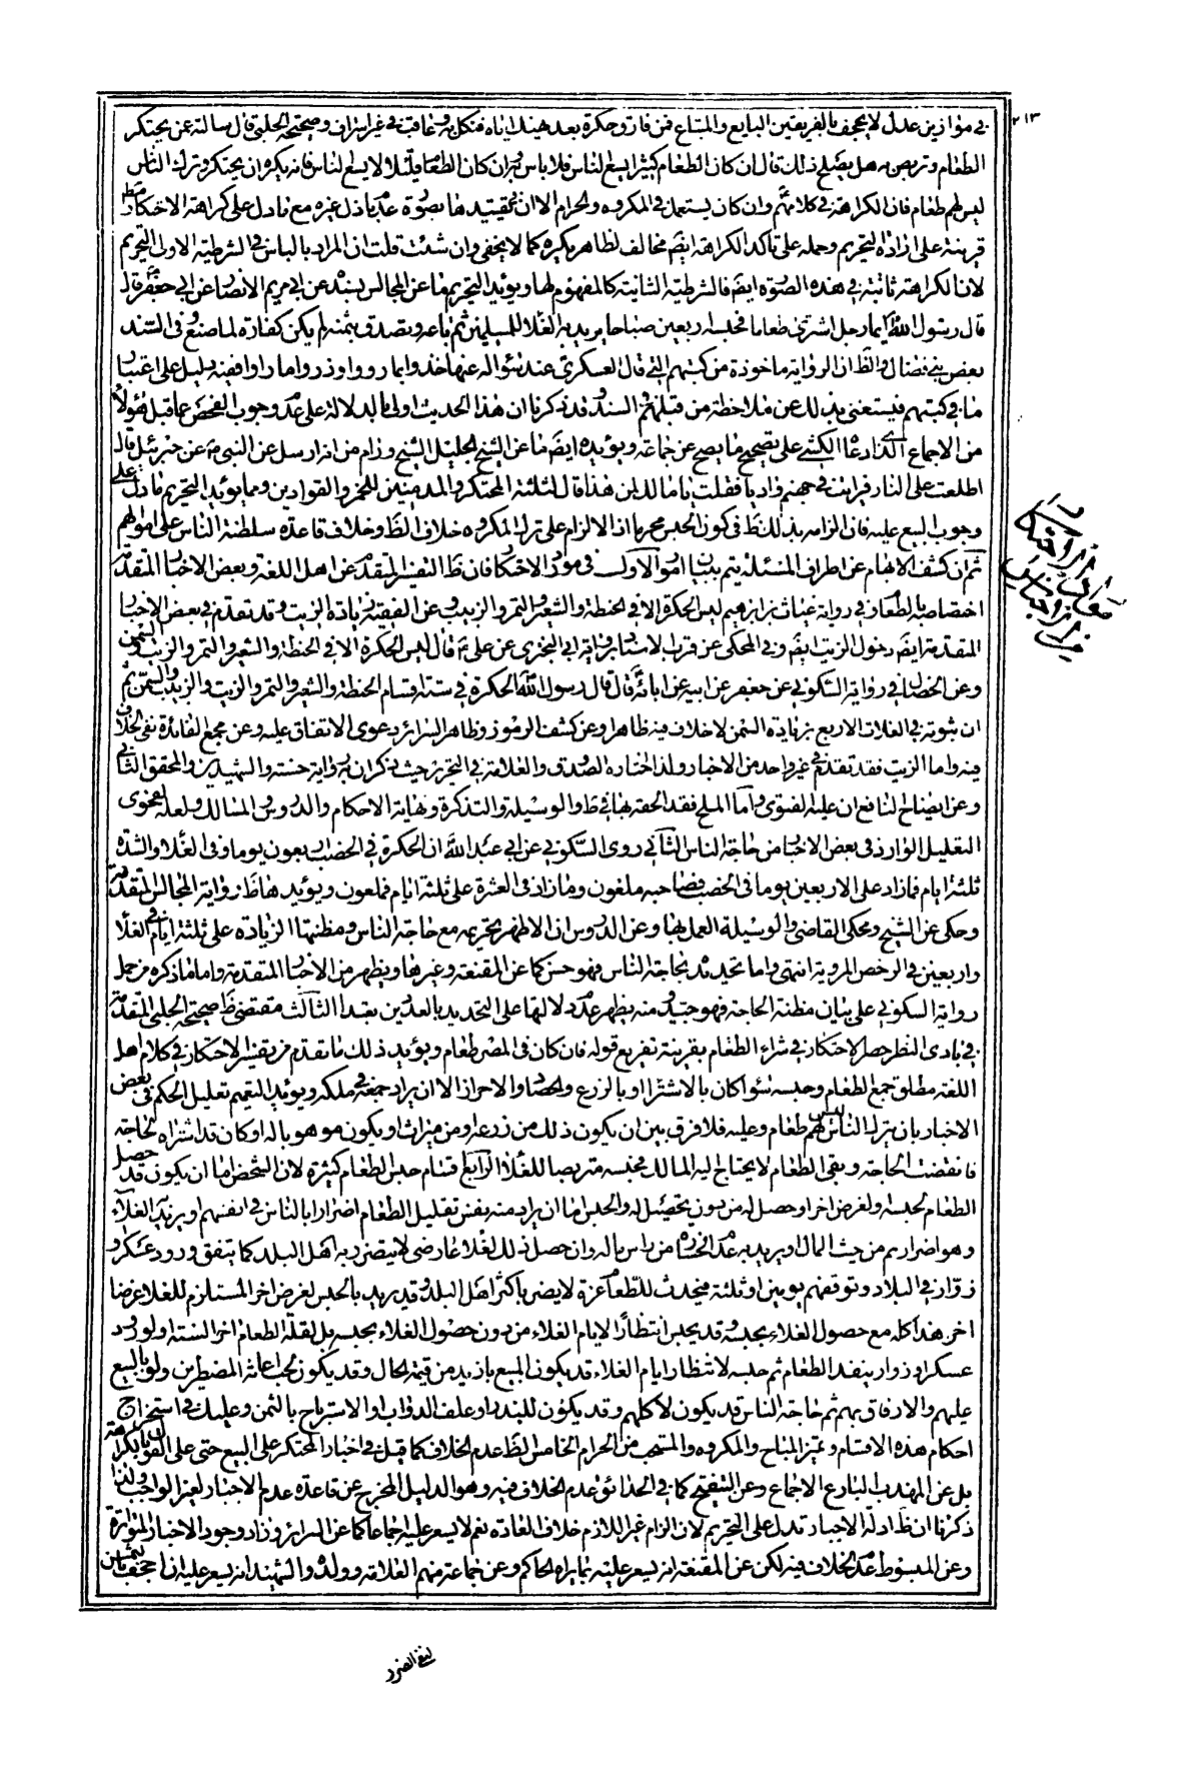 ٢١٣
في موازين عدل لا يجحف بالفريقين البايع والمبتاع فمن قارف حكرة بعد نهيك اياه فنكل به وعاقب في غير اسراف وصحيحة الحلبي قال سالته عمن يحتكر
الطعام ويتربص به هل يصلح ذلك قال ان كان الطعام كثيرا يسع الناس فلا باس به وان كان الطعام قليلا لا يسع الناس فانه يكره ان يحتكر ويترك الناس
ليس لهم طعام فان الكراهة في كلامهم وان كان يستعمل في المكروه والحرام الا ان تقييدها بصورة عدم باذل غيره مع ما دل على كراهة الاحتكار مط
قرينة على ارادة التحريم وحمله على تاكد الكراهة ايضا مخالف لظاهر يكره كما لا يخفى وان شئت قلت ان المراد بالباس في الشرطية الاولى التحريم
لان الكراهة ثابتة في هذه الصورة ايضا فالشرطية الثانية كالمفهوم لها ويؤيد التحريم ما عن المجالس بسنده عن ابي مريم الانصاري عن ابي جعفر قال
قال رسول الله ايما رجل اشترى طعاما فحبسه اربعين صباحا يريد به الغلاء للمسلمين ثم باعه وتصدق بثمنه لم يكن كفارة لما صنع وفي السند
بعض بني فضال والظ ان الرواية ماخوذة من كتبهم التي قال العسكري عند سؤاله عنها خذوا بما رووا وذروا ما راوا ففيه دليل على اعتبار
ما في كتبهم فيستغنى بذلك عن ملاحظة من قبلهم في السند وقد ذكرنا ان هذا الحديث اولى بالدلالة على عدم وجوب الفحص عما قبل هؤلاء
من الاجماع الذي ادعاه الكشي على تصحيح ما يصح عن جماعة ويؤيده ايضا ما عن الشيخ الجليل الشيخ ورام من انه ارسل عن النبي ص عن جبرئيل قال
اطلعت على النار فرايت في جهنم واديا فقلت يا مالك لمن هذا قال لثلثة المحتكرين والمدمنين للخمر والقوادين ومما يؤيد التحريم ما دل على
وجوب البيع عليه فان الزامه بذلك ظ في كون الحبس محرما اذ الالزام على ترك المكروه خلاف الظ وخلاف قاعدة سلطنة الناس على اموالهم
ثم ان كشف الابهام عن اطراف المسئلة يتم ببيان امور الاول في مورد الاحتكار فان ظ التفسير المتقدم عن اهل اللغة وبعض الاخبار المتقدمة
اختصاصه بالطعام وفي رواية غياث بن ابراهيم ليس الحكرة الا في الحنطة والشعير والتمر والزبيب وعن الفقيه زيادة الزيت وقد تقدم في بعض الاخبار
المتقدمة ايضا دخول الزيت ايضا وفي المحكي عن قرب الاسناد برواية ابي البختري عن علي ع قال ليس الحكرة الا في الحنطة والشعير والتمر والزبيب والسمن
وعن الخصال في رواية السكوني عن جعفر عن ابيه عن ابائه قال قال رسول الله الحكرة في ستة اقسام الحنطة والشعير والتمر والزيت والزبيب والسمن ثم
ان ثبوته في الغلات الاربع بزيادة السمن لا خلاف فيه ظاهرا وعن كشف الرموز وظاهر السرائر دعوى الاتفاق عليه وعن مجمع الفائدة نفي الخلاف
فيه واما الزيت فقد تقدم في غير واحد من الاخبار ولذا اختاره الصدوق والعلامة في التحرير حيث ذكر ان به رواية حسنة والشهيدين والمحقق الثاني
وعن ايضاح النافع ان عليه الفتوى واما الملح فقد الحقه بها في ط والوسيلة والتذكرة ونهاية الاحكام والدروس والمسالك ولعله لفحوى
التعليل الوارد في بعض الاخبار من حاجة الناس الثاني روى السكوني عن ابي عبد الله ان الحكرة في الخصب اربعون يوما وفي الغلاء والشدة
ثلثة ايام فما زاد على الاربعين يوما في الخصب فصاحبه ملعون وما زاد في العسرة على ثلثة ايام فملعون ويؤيدها ظ رواية المجالس المتقدمة
وحكي عن الشيخ ومحكي القاضي والوسيلة العمل بها وعن الدروس ان الاظهر تحريمه مع حاجة الناس ومظنتها الزيادة على ثلثة ايام في الغلاء
واربعين في الرخص للرواية انتهى واما تحديده بحاجة الناس فهو حسن كما عن المقنعة وغيرها ويظهر من الاخبار المتقدمة واما ما ذكره من حمل
رواية السكوني على بيان مظنة الحاجة فهو جيد ومنه يظهر عدم دلالتها على التحديد بالعددين تعبدا الثالث مقتضى ظ صحيحة الحلبي المتقدمة
في بادي النظر حصر الاحتكار في شراء الطعام بقرينة تفريع قوله فان كان في المصر طعام ويؤيد ذلك ما تقدم من تفسير الاحتكار في كلام اهل
اللغة مطلق جمع الطعام وحبسه سواء كان بالاشتراء او بالزرع والحصاد والاحراز الا ان يراد جمعه في ملكه ويؤيد التعميم تعليل الحكم في بعض
الاخبار بان يترك الناس ليس لهم طعام وعليه فلا فرق بين ان يكون ذلك من زرعه او من ميراث او يكون موهوبا له او كان قد اشتراه لحاجة
فانقضت الحاجة وبقي الطعام لا يحتاج اليه المالك فحبسه متربصا للغلاء الرابع اقسام حبس الطعام كثيرة لان الشخص اما ان يكون قد حصل
الطعام لحبسه او لغرض اخر او حصل له من دون تحصيل له والحبس اما ان يراد منه نفس تقليل الطعام اضرارا بالناس في انفسهم او يريد به الغلاء
وهو اضرارهم من حيث المال او يريد به عدم الخسارة من راس ماله وان حصل ذلك لغلاء عارضي لا يتضرر به اهل البلد كما يتفق ورود عسكر او
زوار في البلاد وتوقفهم يومين او ثلثة فيحدث للطعام عزة لا يضر باكثر اهل البلد وقد يريد بالحبس لغرض اخر المستلزم للغلاء غرضا
اخر هذا كله مع حصول الغلاء بحبسه وقد يحبس انتظارا لايام الغلاء من دون حصول الغلاء بحبسه بل لقلة الطعام اخر السنة او لورود
عسكر او زوار ينفد الطعام ثم حبسه لانتظار ايام الغلاء قد يكون للبيع بازيد من قيمة الحال وقد يكون لحب اعانة المضطرين ولو بالبيع
عليهم والارفاق بهم ثم حاجة الناس قد يكون لاكلهم وقد يكون للبذر او علف الدواب او الاسترباح بالثمن وعليك في استخراج
احكام هذه الاقسام وتميز المباح والمكروه والمستحب من الحرام الخامس الظ عدم الخلاف كما قيل في اجبار المحتكر على البيع حتى على القول بالكراهة
بل عن المهذب البارع الاجماع وعن التنقيح كما في الحدائق عدم الخلاف فيه وهو الدليل المخرج عن قاعدة عدم الاجبار لغير الواجب ولذا
ذكرنا ان ظ ادلة الاجبار تدل على التحريم لان الزام غير اللازم خلاف القاعدة نعم لا يسعر عليه اجماعا كما عن السرائر وزاد وجود الاخبار المتواترة
وعن المبسوط عدم الخلاف فيه لكن عن المقنعة انه يسعر عليه بما يراه الحاكم وعن جماعة منهم العلامة وولده والشهيد انه يسعر عليه اذا اجحف بالثمن
لنفي الضرر